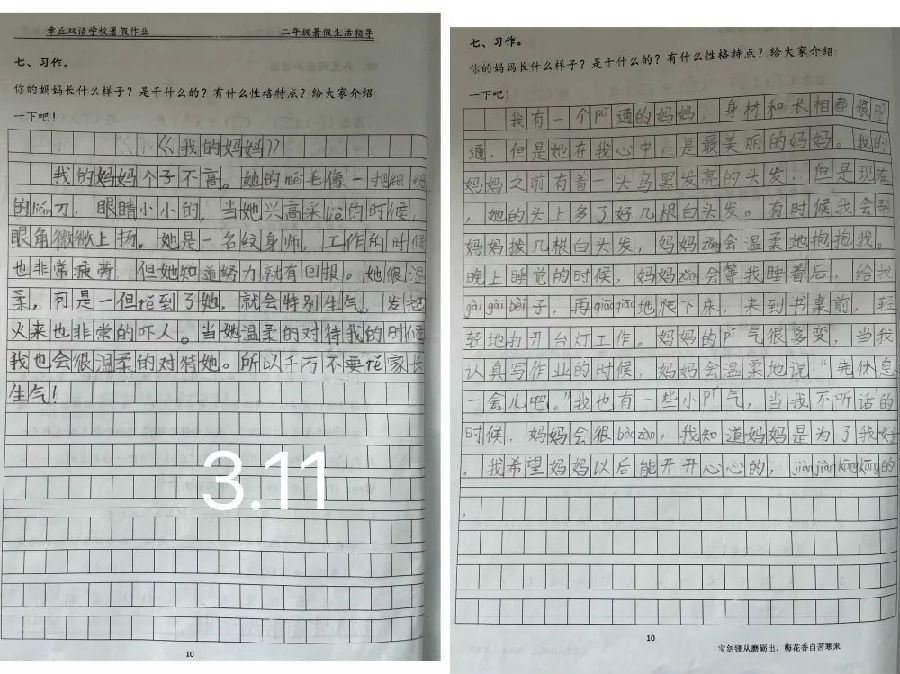 章丘双语学校暑假作业
二年级暑假生活指导
七、习作。
你的妈妈长什么样子？是干什么的？有什么性格特点？给大家介绍
一下吧！
《我的妈妈》
我的妈妈个子不高。她的méi毛像一把细细
的lián刀，眼睛小小的，当她兴高采liè的时候，
眼角微微上扬。她是一名纹身师，工作的时候
也非常疲劳，但她知道努力就有回报。她很温
柔，可是一但rě到了她，就会特别生气，发起
火来也非常的吓人。当她温柔的对待我的时候
我也会很温柔的对待她。所以千万不要rě家长
生气！
3.11
10
七、习作。
你的妈妈长什么样子？是干什么的？有什么性格特点？给大家介绍
一下吧！
我有一个pǔ通的妈妈，身材和长相都很普
通，但是她在我心中是最美丽的妈妈。我的
妈妈之前有着一头乌黑发亮的头发，但是现在
，她的头上多了好几根白头发。有时候我会帮
妈妈拨几根白头发，妈妈会温柔地抱抱我。
晚上睡觉的时候，妈妈会等我睡着后，给我
gài gài bèi子，再qiāoqiāo地爬下床，来到书桌前，轻
轻地打开台灯工作。妈妈的pí气很多变，当我
认真写作业的时候，妈妈会温柔地说“先休息
一会儿吧。”我也有一些小pí气，当我不听话的
时候，妈妈会很bàozào，我知道妈妈是为了我好
。我希望妈妈以后能开开心心的，jiànjiànkāngkāng的
。
10
宝剑锋从磨砺出，梅花香自苦寒来